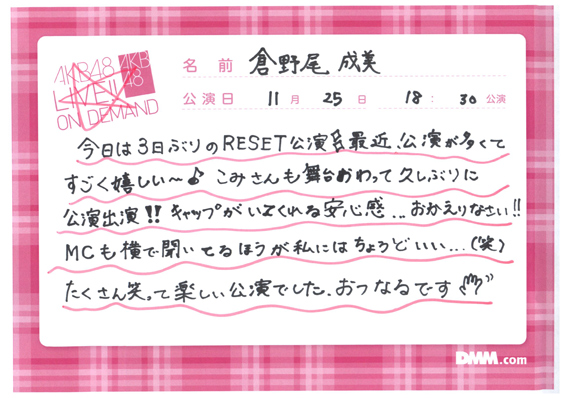 AKB48
LIVE!!
ON DEMAND
AKB
48
名前 倉野尾 成美
公演日 11月 25日 18:30公演
今日は3日ぶりのRESET公演 最近、公演が多くて
すごく嬉しい〜♪ こみさんも舞台おわって久しぶりに
公演出演!! キャップがいてくれる安心感... おかえりなさい!!
MCも横で聞いてるほうが私にはちょうどいい...(笑)
たくさん笑って楽しい公演でした。おつなるです
DMM.com